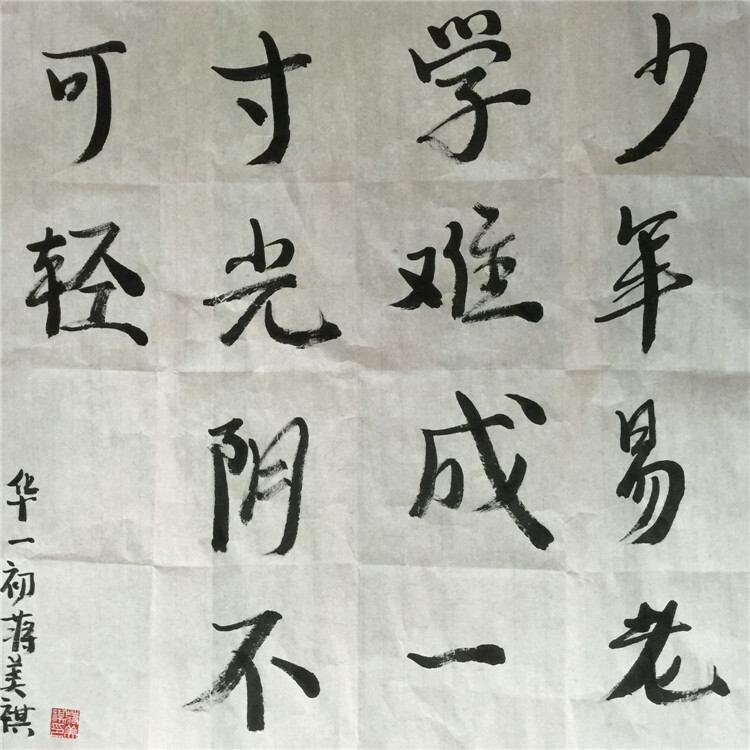 少年易老
学难成一
寸光阴不
可轻
华一初蒋美祺